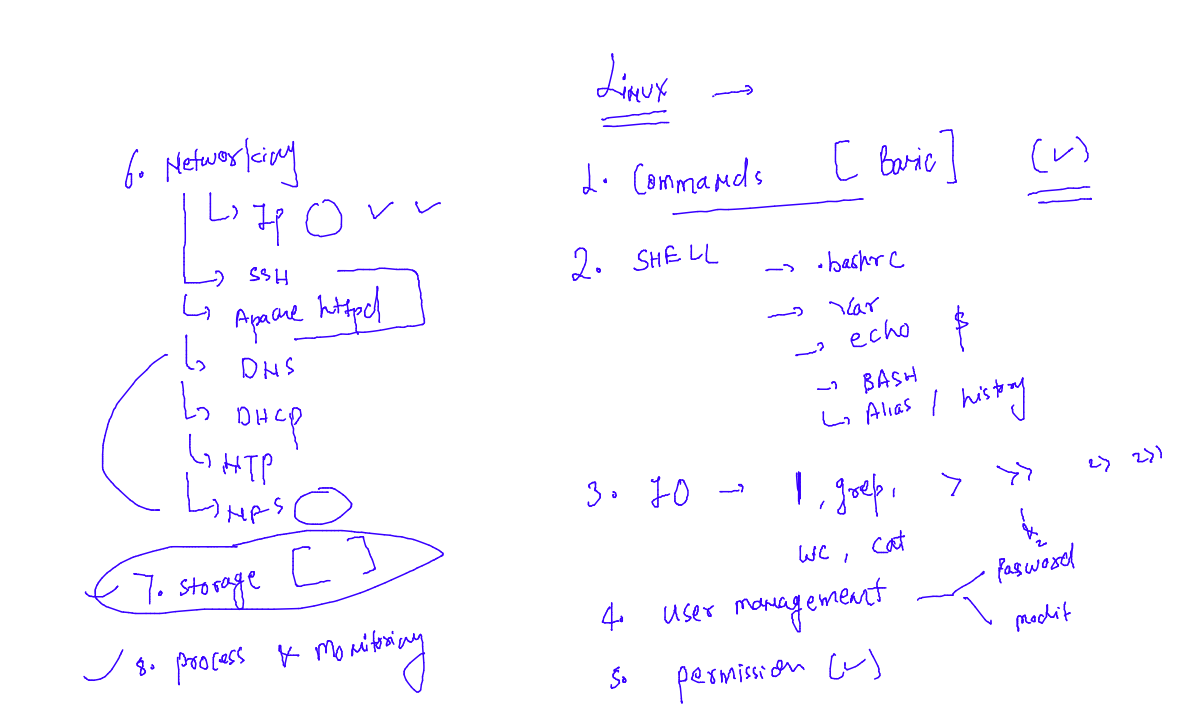 Linux →
1. Commands [Basic] (✓)
2. SHELL → .bashrc
→ var
→ echo $
→ BASH
↳ Alias / history
3. IO → |, grep, > >> 2> 2>>
wc, cat
4. user management
Password
modif
5. permission (✓)
6. Networking
↳ Ip ✓ ✓
↳ SSH
↳ Apache httpd
↳ DNS
↳ DHCP
↳ NTP
↳ NFS
✓ 7. Storage [ ]
✓ 8. process & monitoring